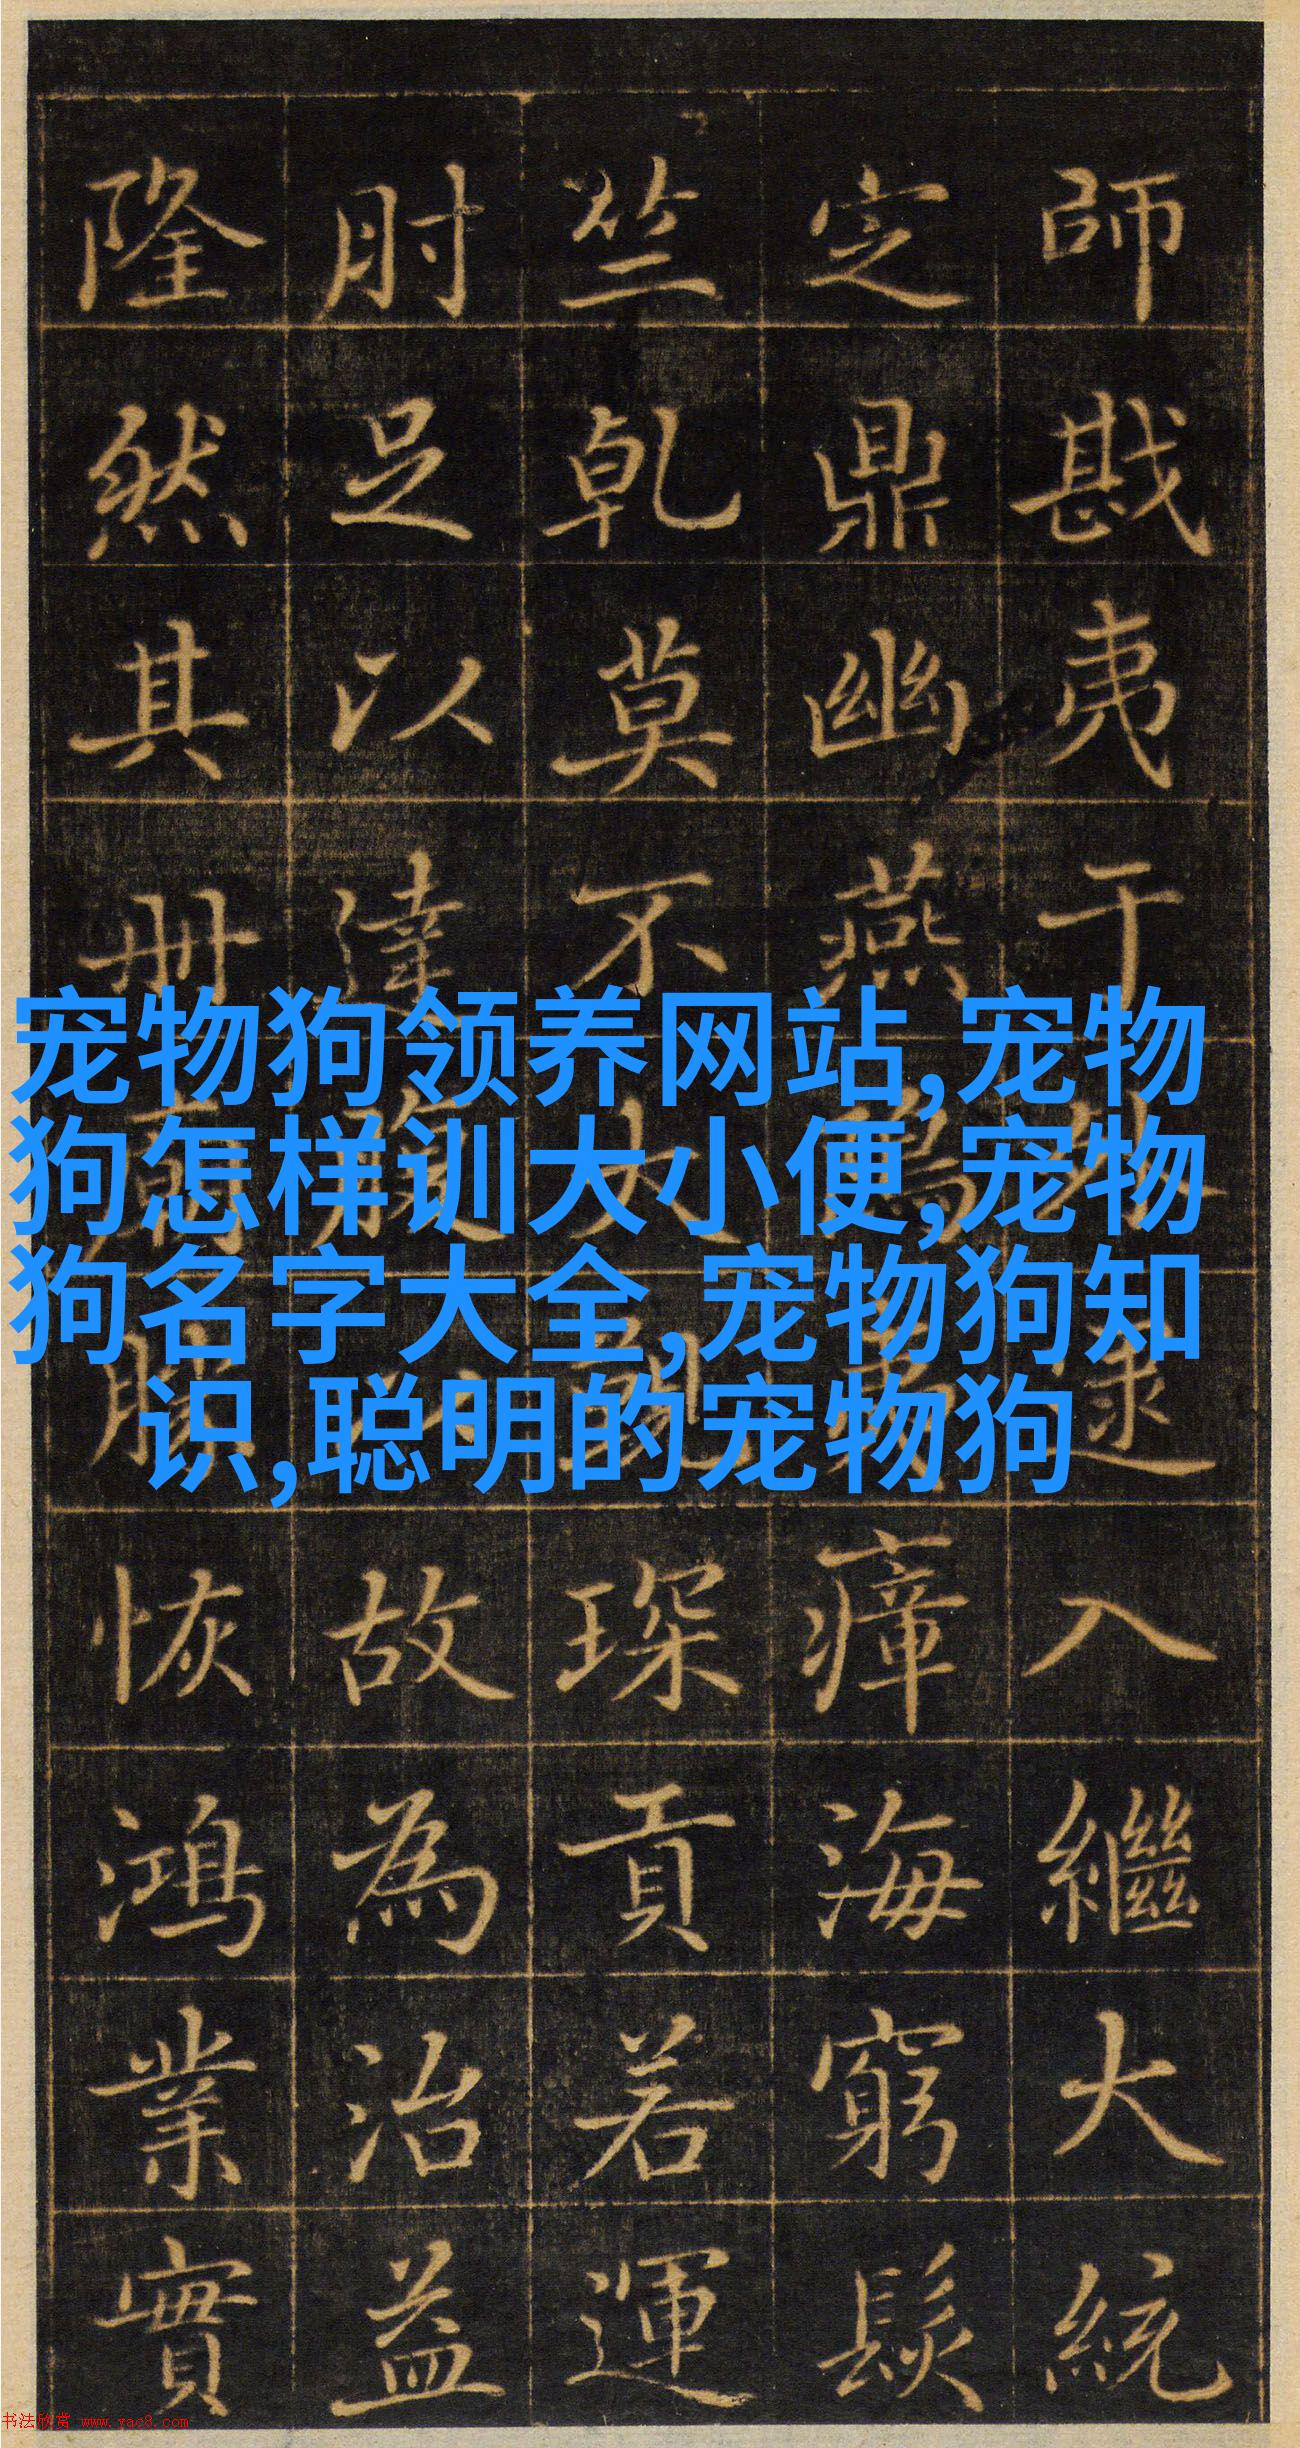 宠物狗领养网站,宠物
狗怎样训大小便,宠物
狗名字大全,宠物狗知
识,聪明的宠物狗
師戡夷于逮入繼大統
定鼎幽燕瘴海窮髮
竺乾莫不琛貢若運
肘足以達腹心故為治益
隆然其冊恢鴻業實
书法欣赏 www.yac8.com